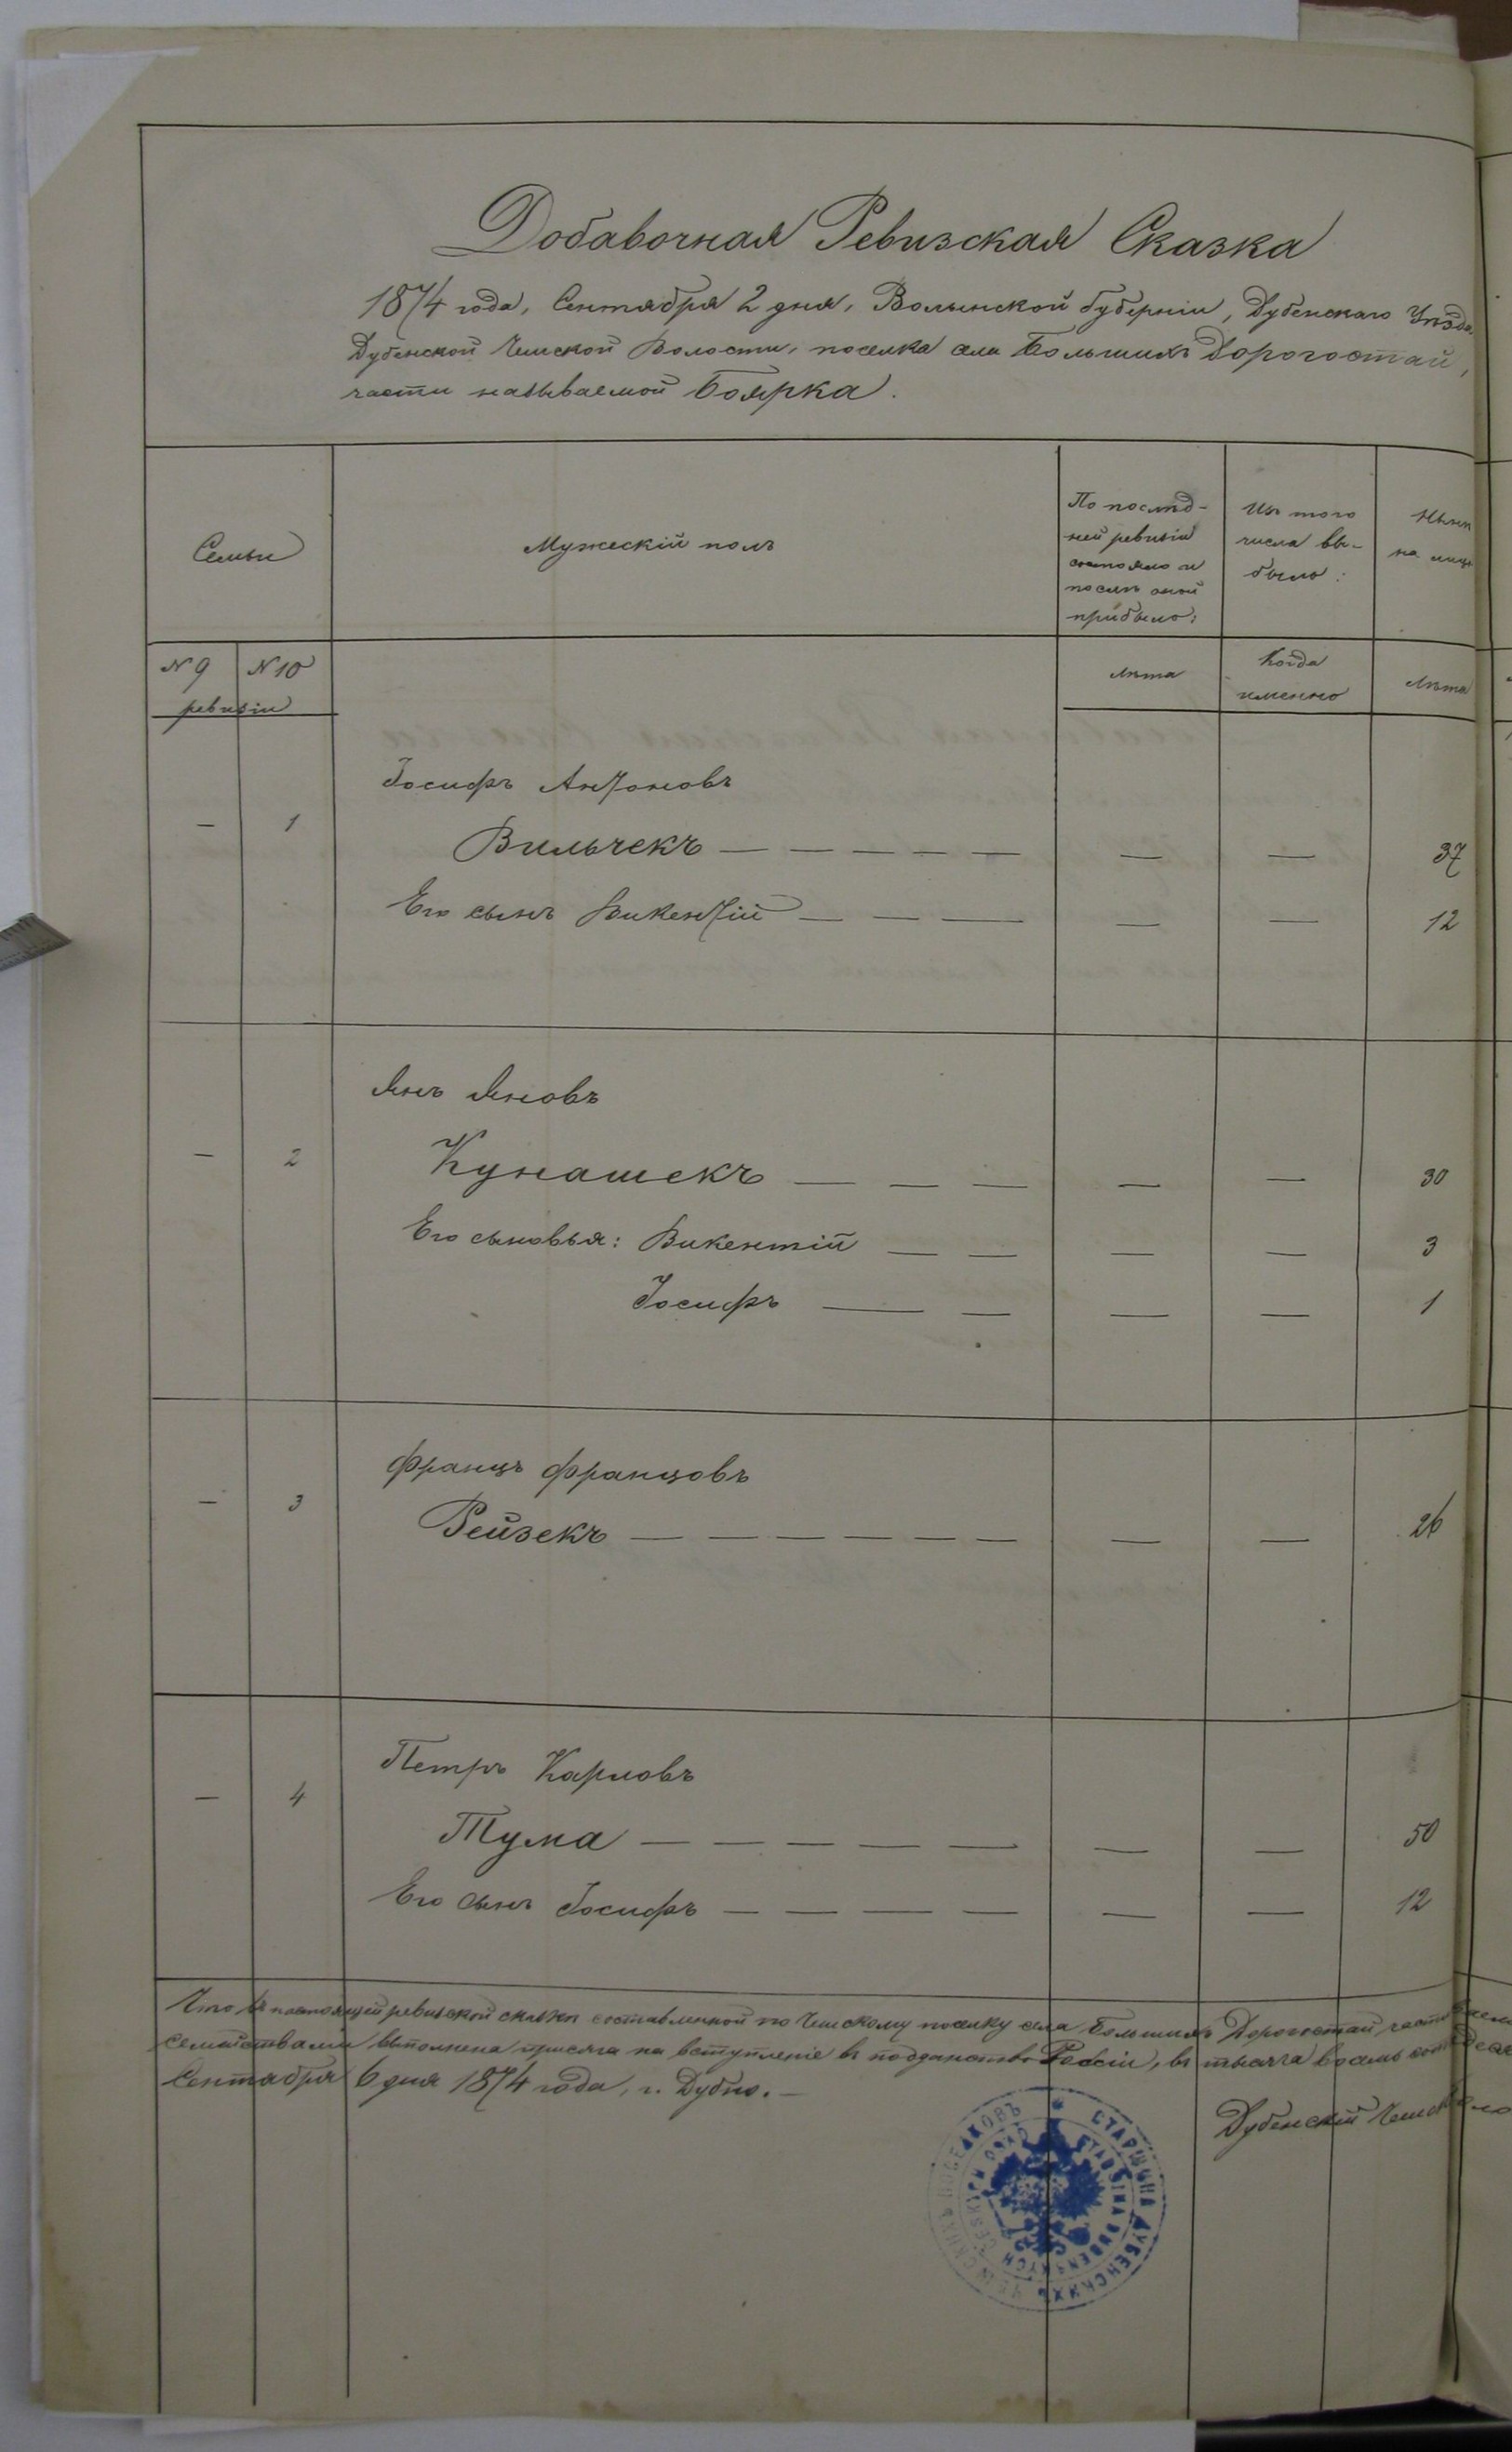 Добавочная Ревизская Сказка
1874 года, Сентября 2 дня, Волынской Губерніи, Дубенскаго Уѣзда
Дубенской Чешской Волости, поселка села Большихъ Дорогостай,
части называемой Боярка.
Семьи
Мужескій полъ
По послѣд-
ней ревизіи
состояло и
послѣ оной
прибыло:
Изъ того
числа вы-
было:
Нынѣ
на лицо
№ 9
№ 10
ревизіи
Лѣта
Когда
именно
Лѣта
Іосифъ Антоновъ
— 1 Вильчекъ — — — — — — — 37
Его сынъ Викентій — — — — — 12
Янъ Яновъ
— 2 Кунашекъ — — — — — 30
Его сыновья: Викентій — — — — 3
Іосифъ — — — — 1
Францъ Францовъ
— 3 Рейзекъ — — — — — — — — 26
Петръ Карловъ
— 4 Тума — — — — — — — 50
Его сынъ Іосифъ — — — — — — 12
Что въ настоящей ревизской сказкѣ составленной по Чешскому поселку села Большихъ Дорогостай части
семействами выполнена присяга на вступленіе въ подданство Россіи, въ тысяча восемь сотъ
Сентября 6 дня 1874 года, г. Дубно. —
Дубенскій
СТАРШИНА ДУБЕНСКИХЪ ЧЕШСКИХЪ ПОСЕЛКОВЪ
STAROSTA DUBENSKYCH ČESKYCH